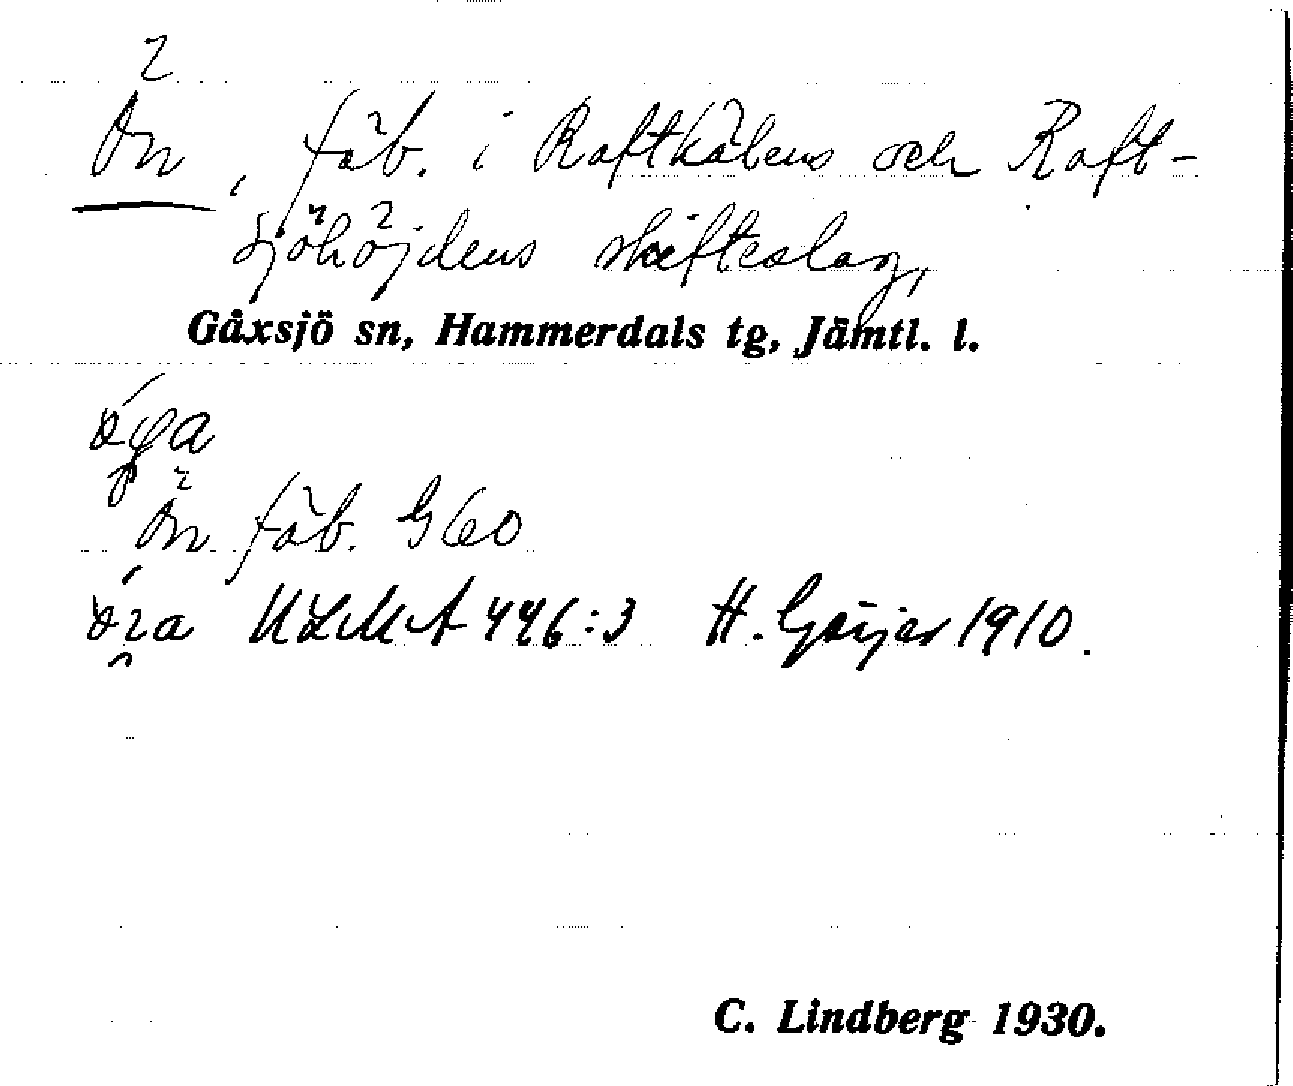 Ön, fäb. i Raftkälens och Raft-
sjöhöjdens skifteslag,
Gåxsjö sn, Hammerdals tg, Jämtl. l.
Ön fäb. G60
ULMA 446:3 H. Geijer 1910.
C. Lindberg 1930.